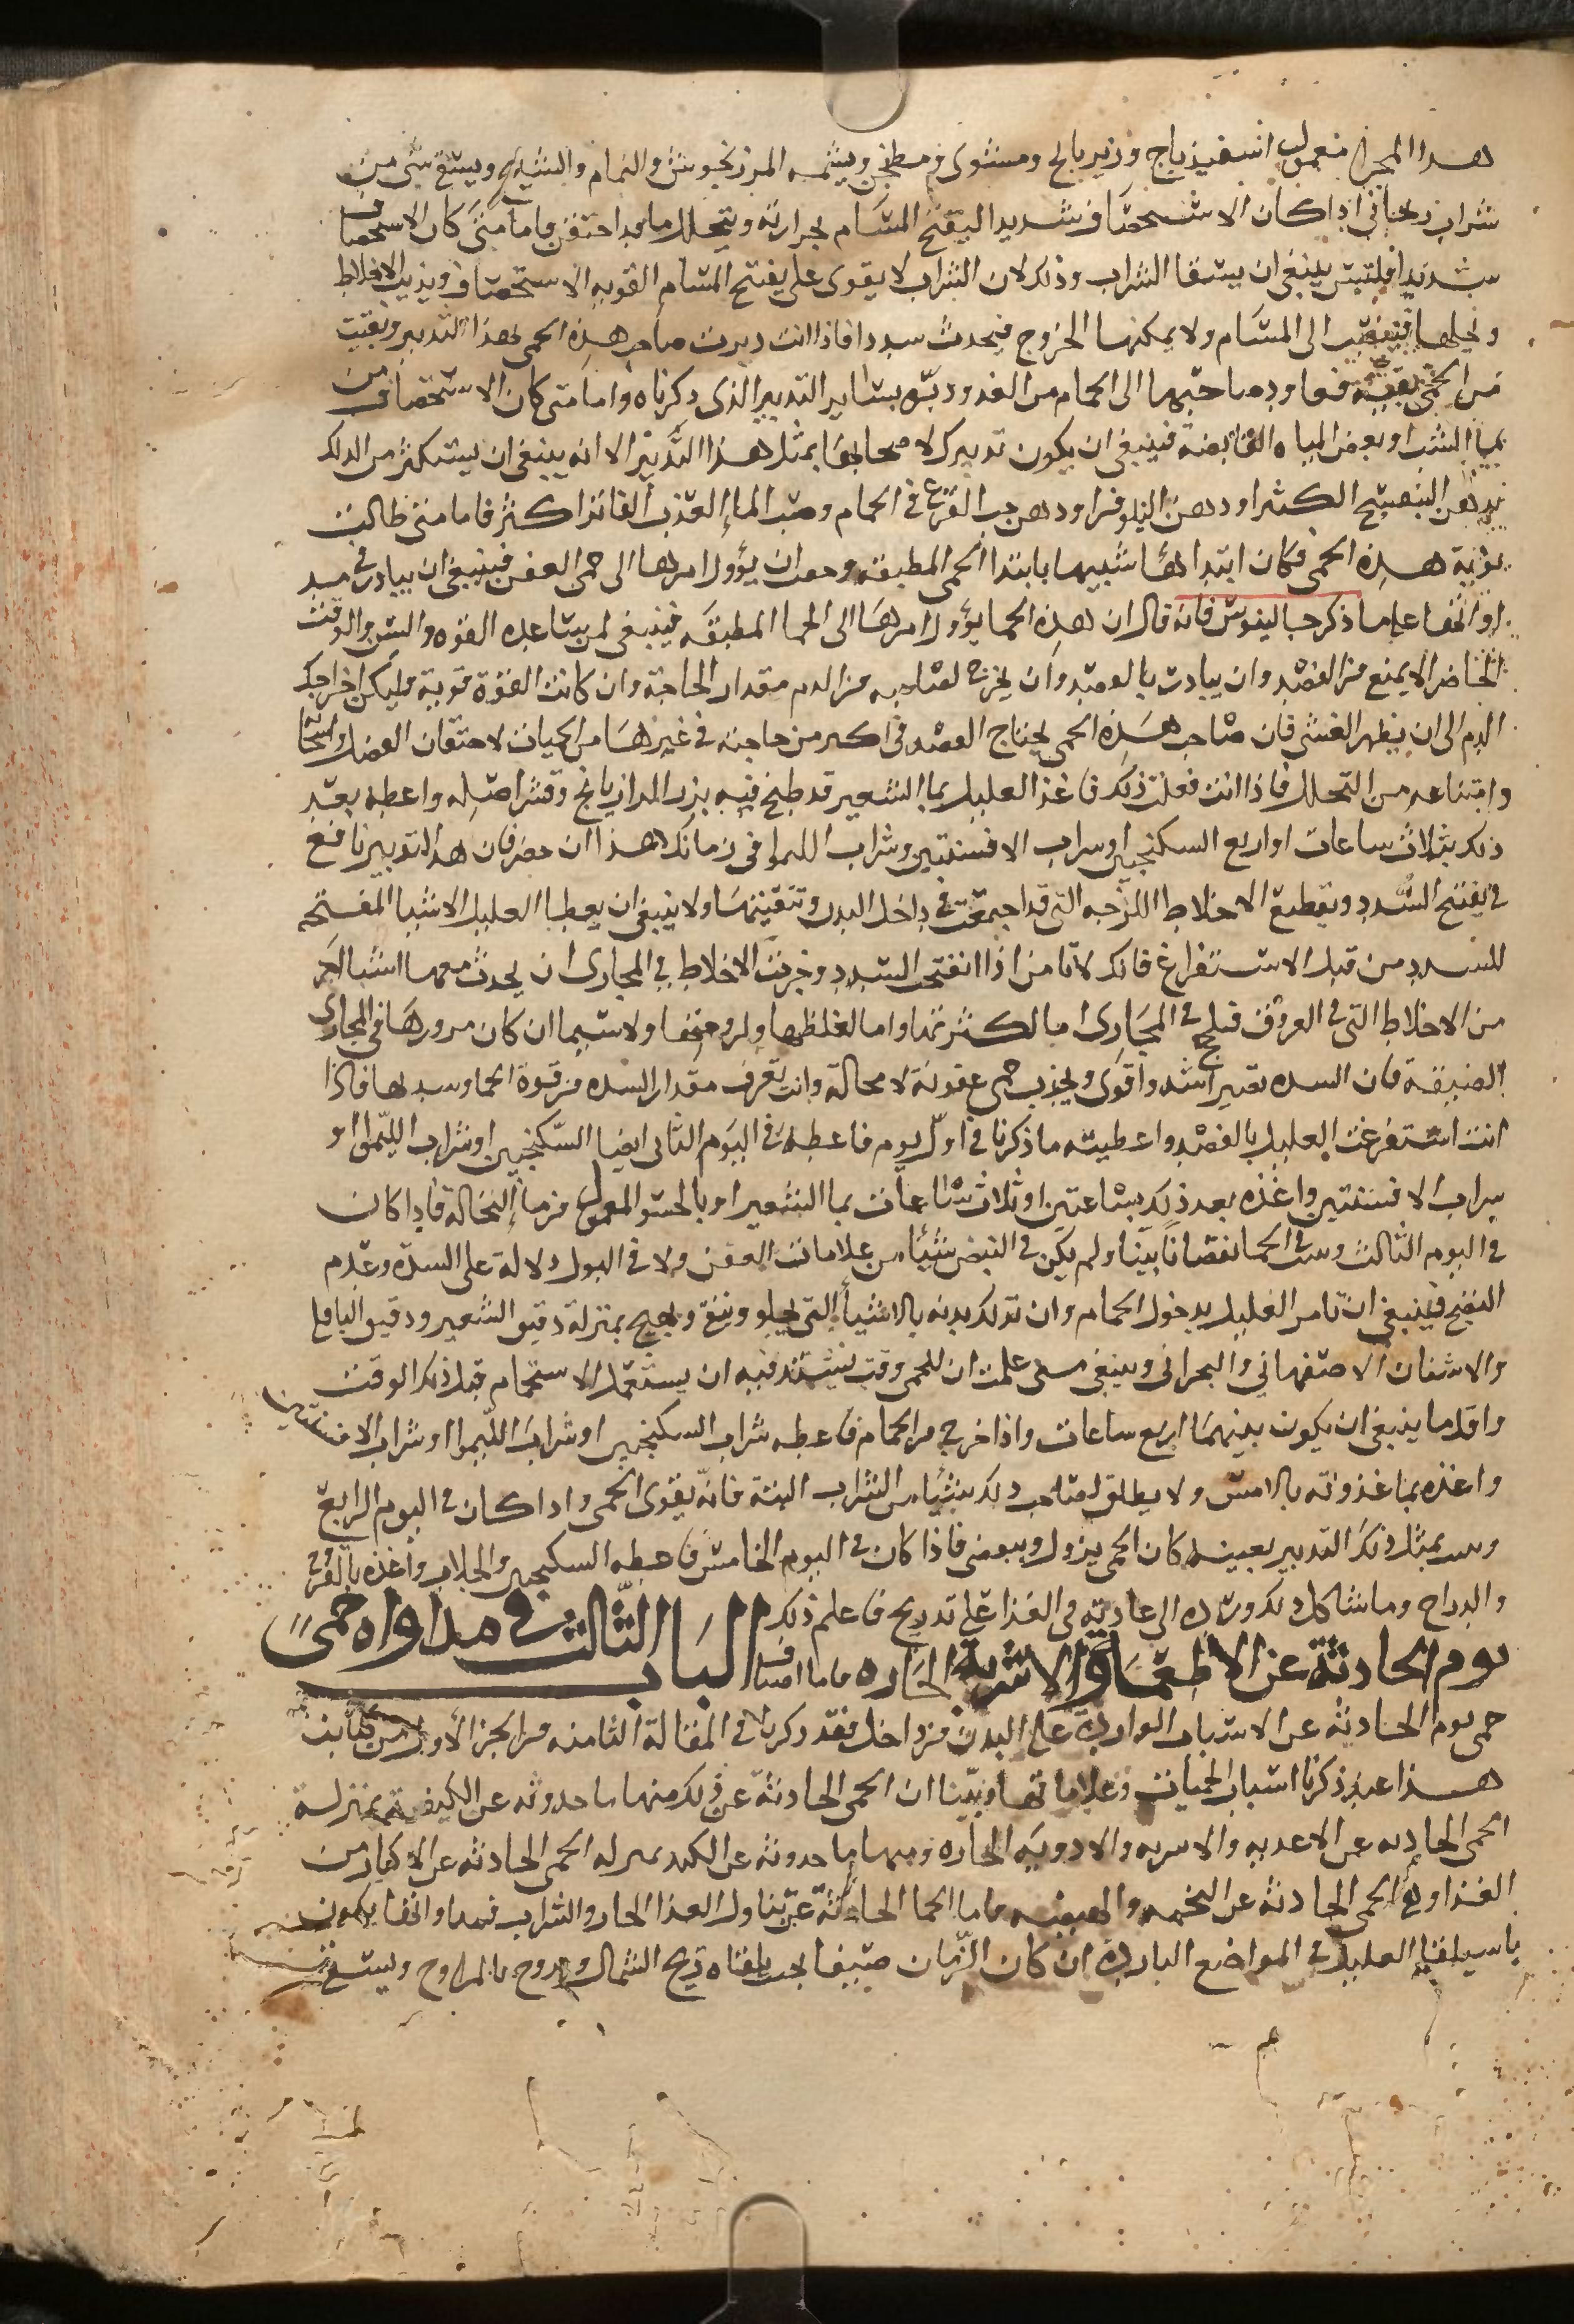 هدا المجرا معمول اسفيذباج وزيرباج ومشوى ومطجن ويشمه المرزنجوش والنمام والشيح ويسقى شى من
شراب ريحاني اذا كان الاستحصاف شديدا ليفتح المسام بحرارته ويتحلل ما قد احتقن فاما متى كان الاستحصاف
شديدا فليس ينبغى ان يسقا الشراب وذلك لان الشراب لا يقوى على يفتح المسام القويه الاستحصاف ويذيب الاخلاط
ويحلها فينصب الى المسام ولا يمكنها الخروج فيحدث سددا فاذا انت دبرت صاحب هذه الحمى بهذا التدبير وبقيت
من الحمى بقيه فعاود صاحبها الى الحمام من الغد ودبره بساير التدبير الذى ذكرناه واما متى كان الاستحصاف من
بما الشب او بعض المياه القابضة فينبغى ان يكون تدبيرك لاصحابها بمثل هذا التدبير الا انه ينبغى ان يستكثر من الدلك
بدهن البنفسج الكثير او دهن النيلوفر او دهن حب القرع فى الحمام وصب الماء العذب الفاتر اكثر فاما متى طالت
نوبة هذه الحمى وكان ابتداها شبيها بابتدا الحمى المطبقه وخفت ان يؤول امرها الى حمى العفن فينبغى ان يبادر فى
اوانها على ما ذكر جالينوس فانه قال ان هذه الحما يؤول امرها الى الحما المطبقه فينبغى لمن يساعده القوه والسن والوقت
الحاضر الا يمنع من الفصد وان يبادر بالفصد وان يخرج لصاحبه من الدم مقدار الحاجة وان كانت القوة قوية فليكن اخراجك
الدم الى ان يظهر الغشى فان صاحب هذه الحمى يحتاج الفصد فى اكثر من حاجته فى غيرها من الحميات لاحتقان الفضل
وامتناعه من التحلل فاذا انت فعلت ذلك فاغذ العليل بما الشعير قد طبخ فيه بزر الرازيانج وقشر اصله واعطه بعد
ذلك بثلاث ساعات او اربع السكنجبين او سراب الافسنتين وشراب الليموا فى زمانك هذا ان حضر فان هذا التدبير نافع
فى يفتح السدد وتقطيع الاخلاط اللزجه التى قد اجتمعت فى داخل البدن وتنقيتها ولا ينبغى ان يعطا العليل الاشيا المفتحه
للسدد من قبل الاستفراغ فانك لا تامن اذا انفتحت السدد وجرت الاخلاط فى المجارى ان يحدث معها اشيا اخر
من الاخلاط التى فى العروق فتلحج فى المجارى اما لكثرتها واما لغلظها ولزوجتها ولاسيما ان كان مرورها فى المجارى
الضيقة فان السده تصير اشد واقوى ويجذب حمى عفونة لا محالة وانت تعرف مقدار السده من قوة الحما وسببها فاذا
انت استفرغت العليل بالفصد واعطيته ما ذكرنا فى اول يوم فاعطه فى اليوم الثانى ايضا السكنجبين او شراب الليموا او
سراب الافسنتين واغذه بعد ذلك بساعتين او ثلاث ساعات بما الشعير او بالحسو المعمول من ماء النخالة فاذا كان
فى اليوم الثالث ورايت الحما نقصانا بينا ولم يكن فى النبض شيئا من علامات العفن ولا فى البول دلالة على السدة وعدم
النضج فينبغى ان تامر العليل بدخول الحمام وان تدلك بدنه بالاشيأ التى يجلو وينقى ويجيح بمنزلة دقيق الشعير ودقيق الباقلى
والاشنان الاصفهاني والبحرانى وينبغى متى علمت ان للحمى وقت يشتد فيه ان يستعمل الاستحمام قبل ذلك الوقت
واقل ما ينبغى ان يكون بينهما اربع ساعات واذا خرج من الحمام فاعطه شراب السكنجبين او شراب الليموا او شراب الافسنتين
واغذه بما غذوته بالامس ولا يطلق لصاحب ذلك شيئا من الشراب البته فانه يقوى الحمى واذا كان فى اليوم الرابع
ودبر بمثل ذلك التدبير بعينه كان الحمى يزول وينقضى فاذا كان فى اليوم الخامس فاعطه السكنجبين والجلاب واغذه بالفروج
والدراج وما شاكل ذلك ورده الى عادته فى الغذا على تدريج فاعلم ذلك الباب الثالث فى مداواه حمى
يوم الحادثة عن الاطعمة والاشربة الحاره فاما اصناف
حمى يوم الحادثه عن الاسباب الوارده على البدن من داخل فقد ذكرنا فى المقالة الثامنه من الجز الأول من كتابنا
هذا عند ذكرنا اسباب الحميات وعلاماتها وبينا ان الحمى الحادثة عن ذلك منها ما حدوثه عن الكيفية بمنزلة
الحمى الحادثه عن الاغديه والاسربه والادويه الحاره ومنها ما حدوثه عن الكميه بمنزله الحمى الحادثه عن الاكثار من
الغذا وفى الحمى الحادثه عن التخمه والهيضه فاما الحما الحادثة عن تناول الغذا الحار والشراب فمداواتها يكون
باسيلقا العليل فى المواضع البارده ان كان الزمان صيفا بحيث يلقاه ريح الشمال ويروح بالمراوح ويسقى